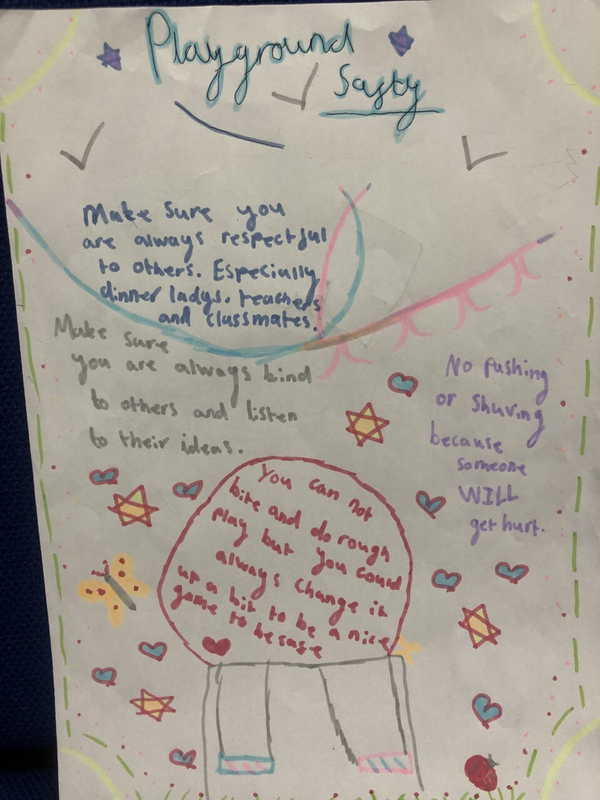 Playground
Safty
Make Sure you
are always respectful
to others. Especially
dinner ladys, teachers
and classmates.
Make sure
you are always kind
to others and listen
to their ideas.
No pushing
or Shuving
because
someone
WILL
get hurt.
You can not
bite and do rough
play but you could
always change it
up a bit to be a nice
game to be safe